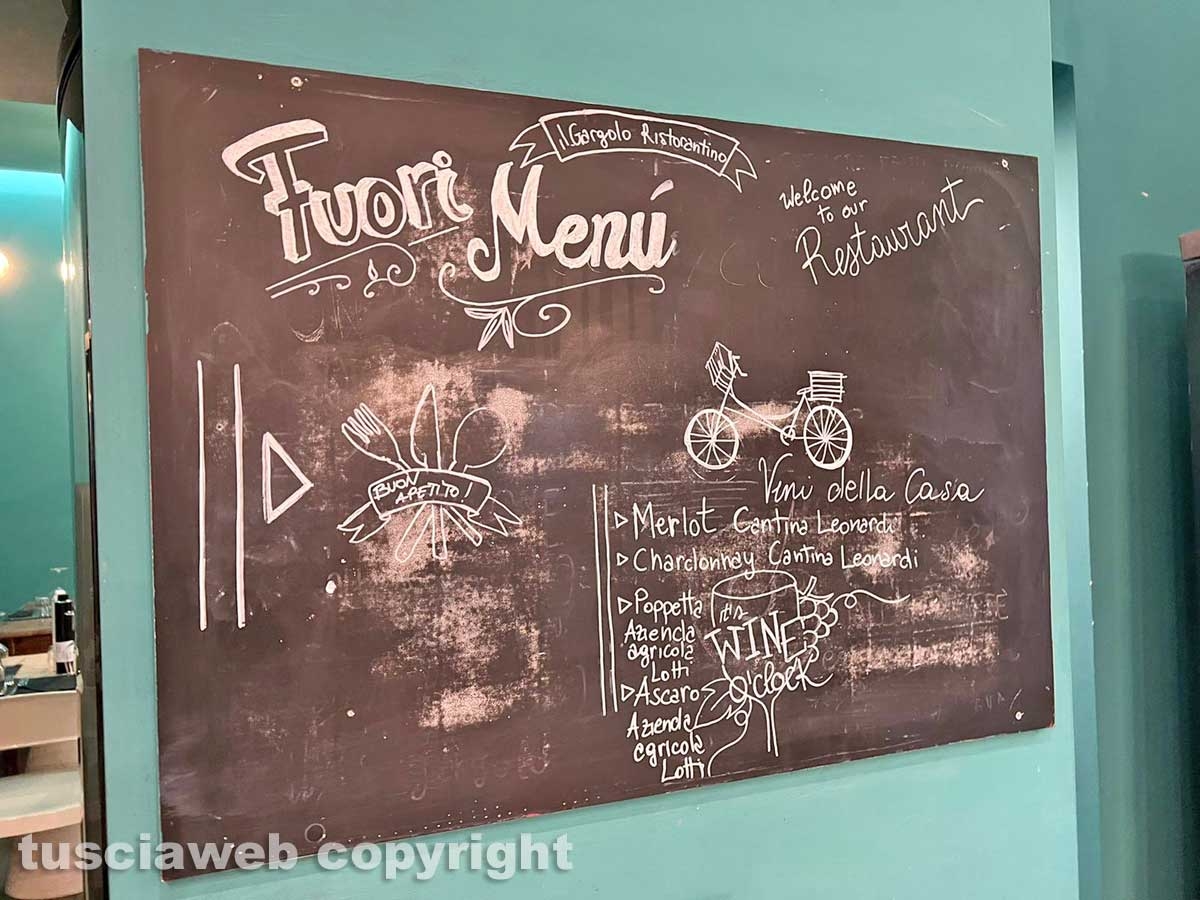 il Gargolo Ristorantino
Fuori
Menú
Welcome
to our
Restaurant
BUON
APETITO!
Vini della Casa
Merlot Cantina Leonardi
Chardonnay Cantina Leonardi
Poppetta
Azienda
agricola
Lotti
Ascaro
Azienda
agricola
Lotti
it's
WINE
O'CLOCK
tusciaweb copyright